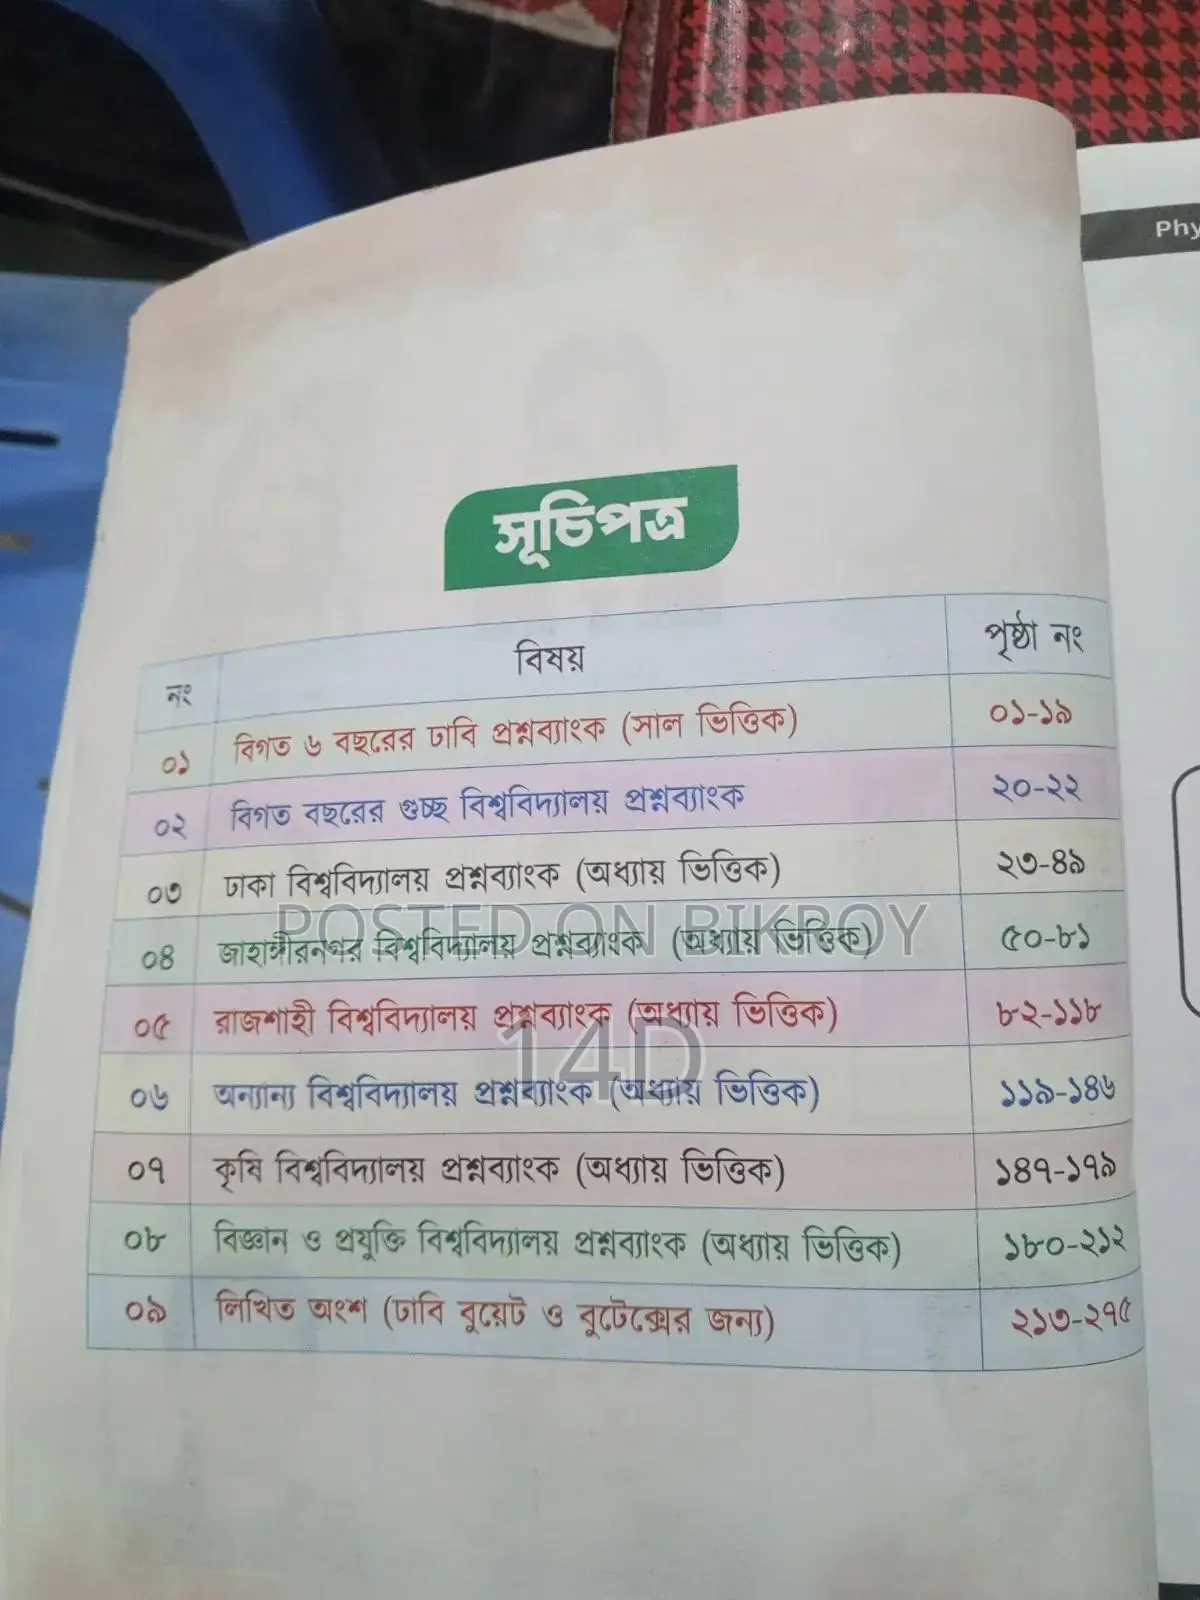 Phy
সূচিপত্র
নং বিষয় পৃষ্ঠা নং
০১ বিগত ৬ বছরের ঢাবি প্রশ্নব্যাংক (সাল ভিত্তিক) ০১-১৯
০২ বিগত বছরের গুচ্ছ বিশ্ববিদ্যালয় প্রশ্নব্যাংক ২০-২২
০৩ ঢাকা বিশ্ববিদ্যালয় প্রশ্নব্যাংক (অধ্যায় ভিত্তিক) ২৩-৪৯
০৪ জাহাঙ্গীরনগর বিশ্ববিদ্যালয় প্রশ্নব্যাংক (অধ্যায় ভিত্তিক) ৫০-৮১
০৫ রাজশাহী বিশ্ববিদ্যালয় প্রশ্নব্যাংক (অধ্যায় ভিত্তিক) ৮২-১১৮
০৬ অন্যান্য বিশ্ববিদ্যালয় প্রশ্নব্যাংক (অধ্যায় ভিত্তিক) ১১৯-১৪৬
০৭ কৃষি বিশ্ববিদ্যালয় প্রশ্নব্যাংক (অধ্যায় ভিত্তিক) ১৪৭-১৭৯
০৮ বিজ্ঞান ও প্রযুক্তি বিশ্ববিদ্যালয় প্রশ্নব্যাংক (অধ্যায় ভিত্তিক) ১৮০-২১২
০৯ লিখিত অংশ (ঢাবি বুয়েট ও বুটেক্সের জন্য) ২১৩-২৭৫
POSTED ON BIKROY
14D